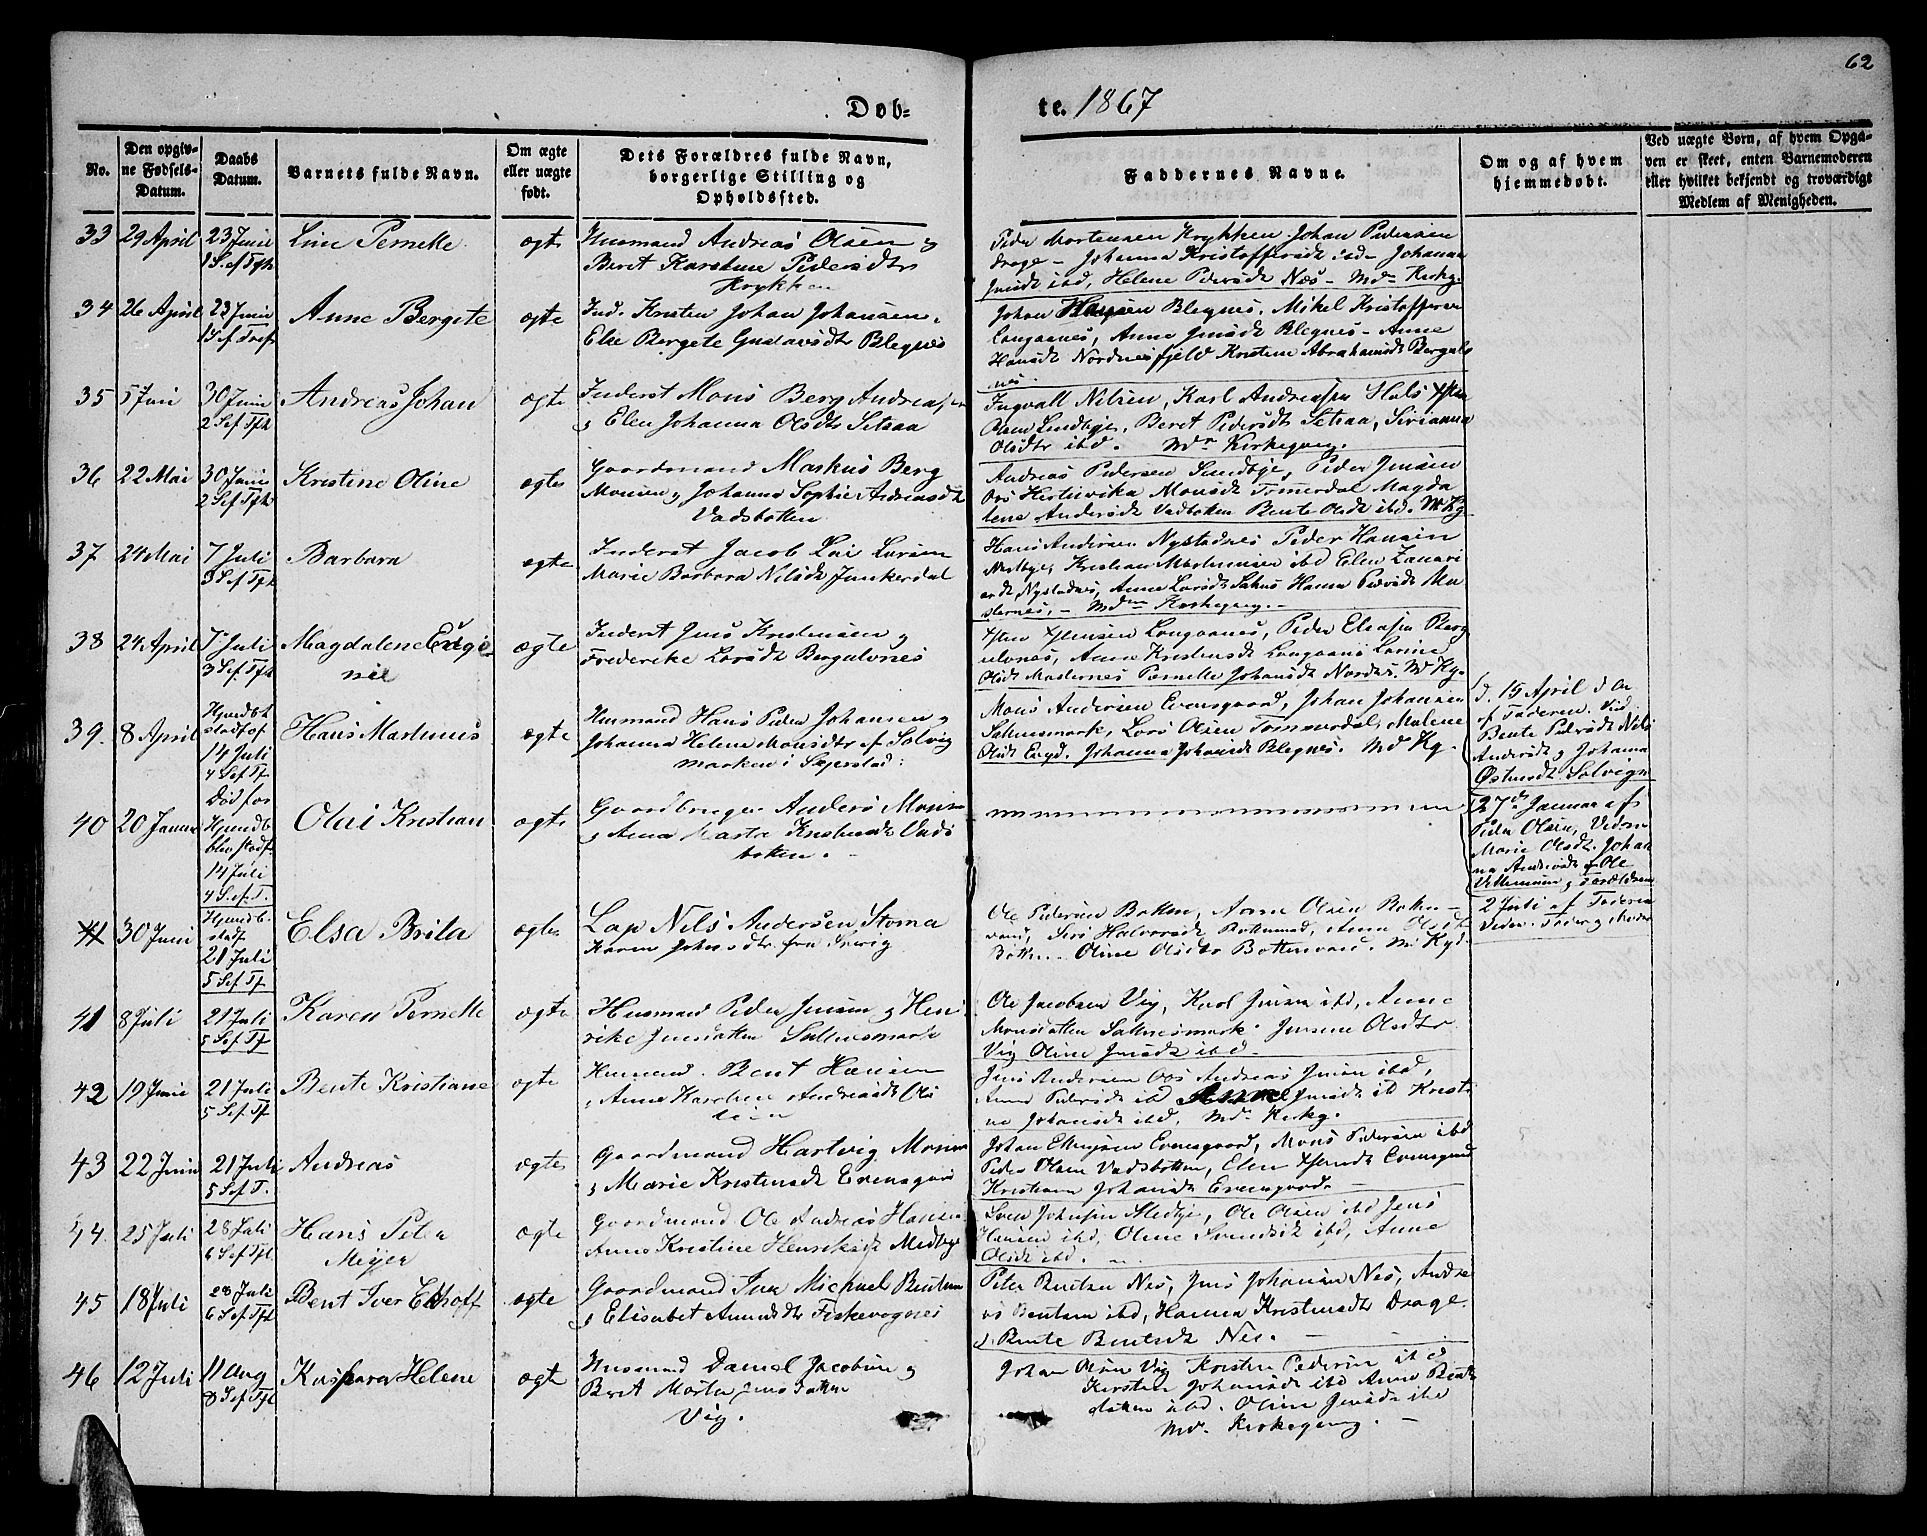 62
Døb-
te. 1867
No.
Den opgiv-
ne Fødsels-
Datum.
Daabs
Datum.
Barnets fulde Navn.
Om ægte
eller uægte
født.
Dets Forældres fulde Navn,
borgerlige Stilling og
Opholdssted.
Faddernes Navne.
Om og af hvem
hjemmedøbt.
Ved uægte Børn, af hvem Opga-
ven er skeet, enten Barnemoderen
eller hvilket bekjendt og troværdigt
Medlem af Menigheden.
33 29 April 23 Juni Line Pernelle ægte Husmand Andreas Olsen og
Beret Karoline Pedersdtr
Krykken
Peder Mortensen Krykken. Johan Pedersen
Drage - Johanna Kristoffersdt ibd - Johanna
Jensdt ibd, Helene Pedersdt Næs - Mdn Kirkg.
34 26 April 23 Juni Anne Bergite ægte Ind. Kristen Johan Johansen
Else Bergete Gustavsdtr Blegnes
Johan Hansen Blegnes. Mikel Kristoffersen
Langaanes, Anne Jensdt Blegnes - Anne
Hansdt Nordnesfjeld Kristine Abrahamsdt Bergul
nes.
35 5 Juni 30 Juni Andreas Johan ægte Inderst Mons Berg Andreasen
og Elen Johanna Olsdtr Setsaa
2 S. ef Tfh
Ingvall Nilsen, Karl Andreasen Hals
Olsen Sundbye, Beret Pedersdt Setsaa,
Olsdtr ibd. Mdn Kirkegang.
36 22 Mai 30 Juni Kristine Oline ægte Gaardmand Markus Berg
Monsen og Johanna Sophie Andreasdt
Vadsbotten
2 S. ef Tfh
Andreas Pedersen Sundbye, Peder Jensen
Monsdt Tømmerdal Magda
lene Andersdt Vadbotten Bente Olsdt ibd. M Kg
37 24 Mai 7 Juli Barbara ægte Inderst Jacob Lai Larsen
Marie Barbara Nilsdt Junkerdal
3 S. ef Tfh
Hans Andersen Nystadnes Peder Hansen
Medbye, Kristian Martinusen ibd Elen Zakari
asdt Nystadnes, Anne Larsdt Saknes Hanna Pedersdt
- Mdn Kirkegang. -
38 24 April 7 Juli Magdalene Euge ægte Inderst Jens Kristensen og
nie Frederike Larsdt Bergulvnes
3 S. ef Tfh
Jensen Langaanes, Peder Eliasen Berg
ulvnes, Anne Kristensdt Langaanes Lorine
Olsdt Pernelle Johansdt Nordnes. M Kg.
39. 8 April Hjemdbt
stadf. ef
14 Juli
4 S. ef Tf.
Hans Martinus ægte Husmand Hans Peder Johansen og
Johanna Helene Monsdtr af Solvig
marken i Skjerstad:
Mons Andersen Evensgaard, Johan Johansen
Saltnesmark, Lars Olsen Tømmerdal, Malene
Olsdt Engd. Johanna Johansdt Blegnes. Md Kg.
d. 15 April
af Faderen. Vid
Bente Pedersdt
Andersdt og Johanna
Solvign
40 20 Januar Død før
Hjemdb
blev stadf.
14 Juli
4 S. ef. T.
Olai Kristian ægte Gaardbruger Anders Monsen
og Anna Marta Kristensdt Vads
botten.
27de Januar af
Peder Olsen, Vidne
Marie Olsdt. Johan
na Andersdt og Ole
og Forældrene
41 30 Juni Hjemdb.
stadf.
21 Juli
5 S. ef Tf.
Elsa Brita ægte Lap Nils Andersen Storna
Karen Johnsdtr fra Sverig
Ole Pedersen Botten, Anne Olsen Botten-
vand, Siri Halvorsdt Bottenvand, Anna Olsdt
Botten. Oline Olsdtr Bottenvand. M Kg.
2 Juli af Faderen
Vidner. Fader og Moder
41 8 Juli 21 Juli Karen Pernelle ægte Husmand Peder Jensen og Hen
rike Jensdatter Saltnesmark
5 S. ef Tf
Ole Jacobsen Vig, Karl Jensen ibd, Anne
Monsdatter Saltnesmark. Jensine Olsdtr
Vig Oline Jensdt ibd.
42 19 Juni 21 Juli Bente Kristiane ægte Husmand. Bent Hansen
og Anne Karoline Andreasdt
5 S. ef Tf
Jens Andersen Andreas Jensen ibd,
Anne Pedersdt ibd Anne Jensdt ib Kristi
ne Johansdt ibd, Md. Kirkg.
43 22 Juni 21 Juli Andreas ægte Gaardmand Hartvig Monsen
og Marie Kristensdt Evensgaard
5 S. ef T.
Johan Ellingsen Evensgaard, Mons Pedersen ibd
Peder Olsen Vadsbotten, Elen Evensgaard
Kristiane Johansdt Evensgaard -
44. 25 Juli 28 Juli Hans Peter ægte Gaardmand Ole Andreas Hansen
Meyer Anne Kristine Henriksdt Medbye
6 S. ef Tfh
Sven Johnsen Medbye, Ole Olsen ibd Jens
Hansen ibd, Oline Svendsdt ibd, Anne
Olsdt ibd. -
45 18 Juli 28 Juli Bent Iver Ekhoff ægte Gaardmand Iver Michael Bentsen
og Elisabet Amundsdtr Fiskevognes
6 S. ef Tfh
Peter Bentsen Nes, Jens Johansen Nes, Andre
as Bentsen ibd, Hanna Kristensdtr Drage.
og Bente Bentsdt Nes. -
46 12 Juli 11 Aug Kaspara Helene ægte Husmand Daniel Jacobsen og
Beret Marta Jensdatter
Vig.
8 S. ef Tfh
Johan Olsen Vig Kristen Pedersen ibd
Kirsten Johansdt ibd Anne Bents
datter ibd. Oline Jensdt ibd
Md. Kirkegang. -